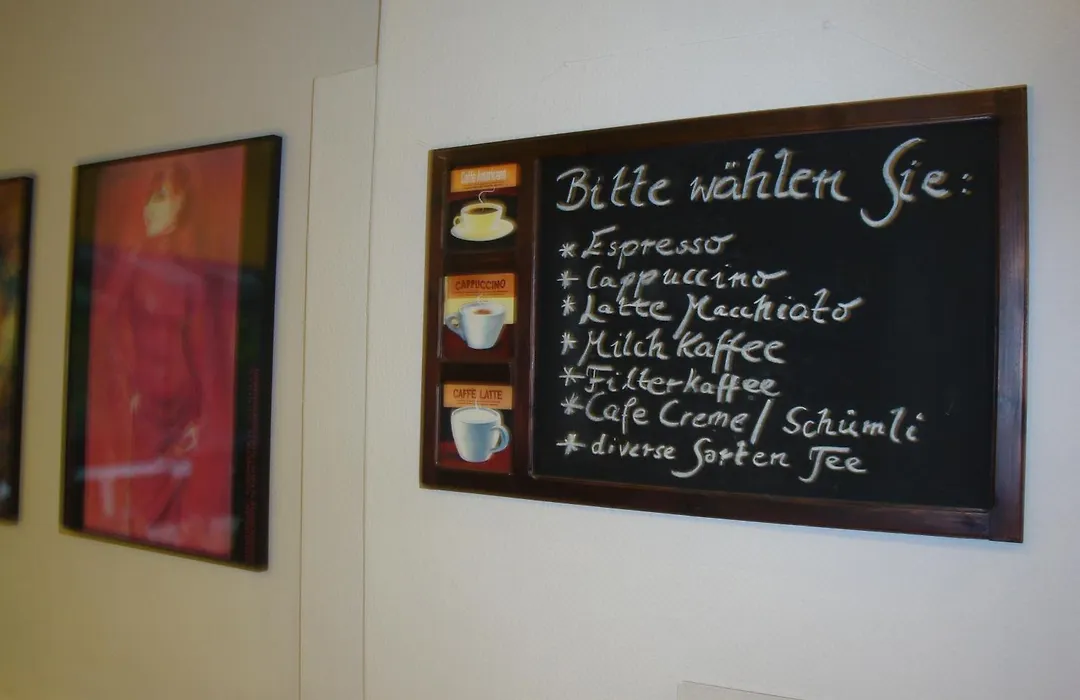 Caffe Americano
CAPPUCCINO
CAFFÈ LATTE
Bitte wählen Sie:
* Espresso
* Cappuccino
* Latte Macchiato
* Milch Kaffee
* Filterkaffee
* Cafe Creme / Schümli
* diverse Sorten Tee